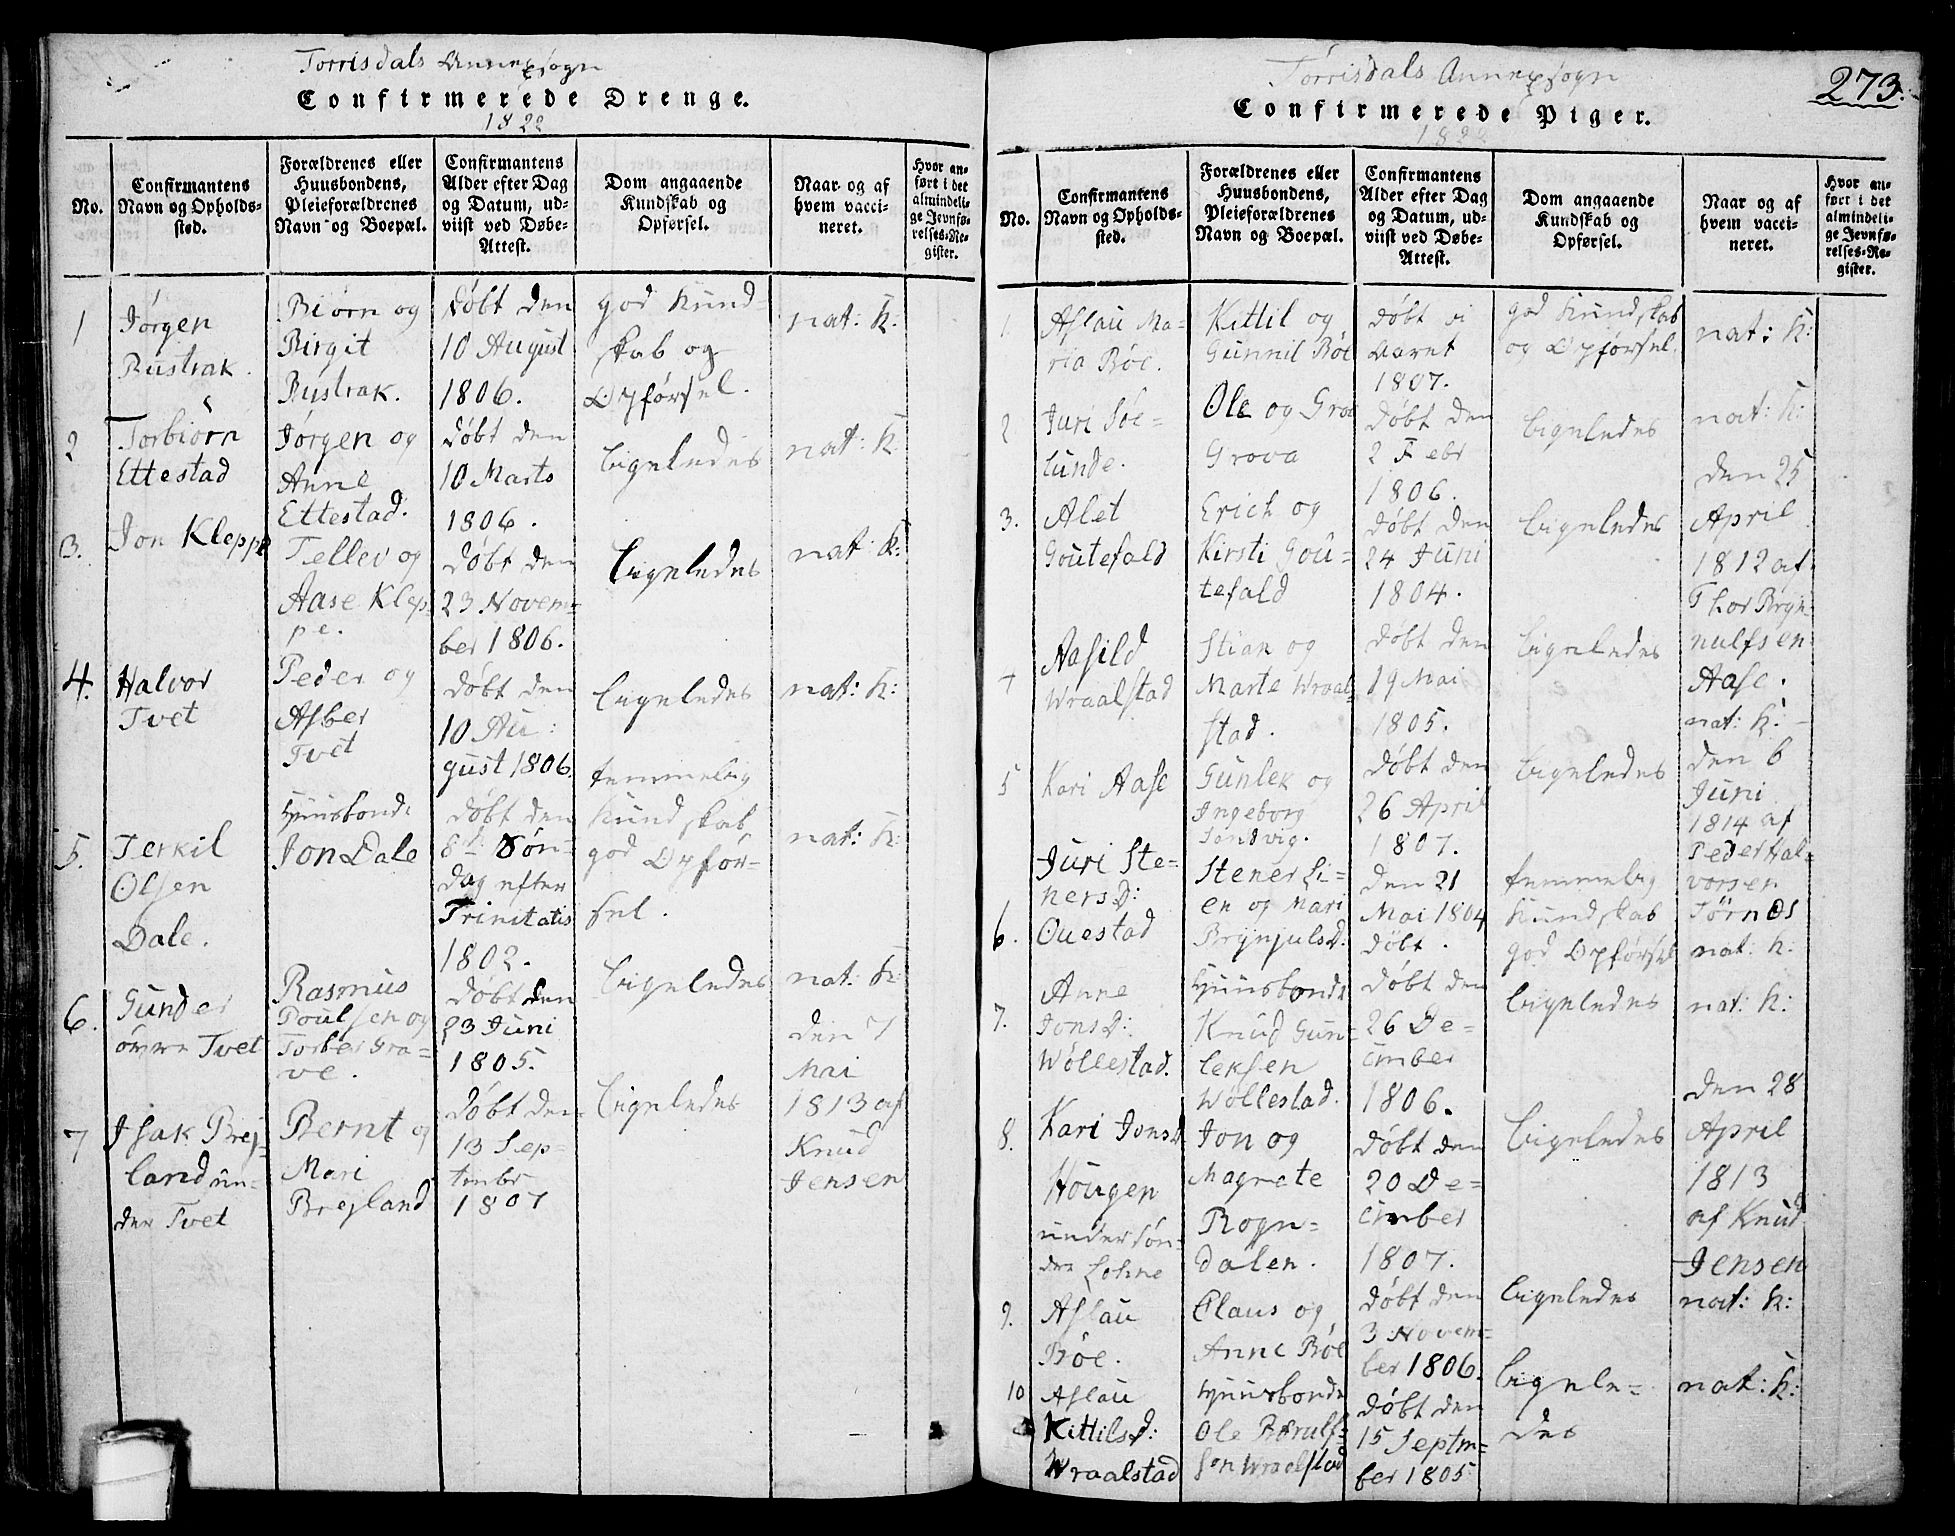 Torrisdals Annexsogn
Confirmerede Drenge.
1822
No.
Confirmantens
Navn og Opholds-
sted.
Forældrenes eller
Huusbondens,
Pleieforældrenes
Navn og Boepæl.
Confirmantens
Alder efter Dag
og Datum, ud-
viist ved Døbe-
Attest.
Dom angaaende
Kundskab og
Opførsel.
Naar og af
hvem vacci-
neret.
Hvor an-
ført i det
almindeli-
ge Jevnfø-
relses-Re-
gister.
1
Jørgen
Rustrak.
Biørn og
Birgit
Rustrak.
døbt den
10 August
1806.
god Kund-
skab og
Opførsel.
nat: K:
2
Torbiørn
Ettestad
Jørgen og
Anne
Ettestad.
døbt den
10 Marts
1806.
Ligeledes
nat: K:
3.
Jon Kleppe
Tellev og
Aase Klep-
pe.
døbt den
23. Novem-
ber 1806.
Ligeledes
nat: K:
4.
Halvor
Tvet
Peder og
Asber
Tvet
døbt den
10 Au:
gust 1806.
Ligeledes
nat: K:
5.
Terkil
Olsen
Dale.
Huusbonde
Jon Dale
døbt den
8de Søn-
dag efter
Trinitatis
1802.
temmelig
Kundskab,
god Opfør-
sel.
nat: K:
6.
Gunder
øvre Tvet
Rasmus
Poulsen og
Torber Gra-
ve.
døbt den
23 Juni
1805.
Ligeledes
nat: K:
7
Isak Brej-
land un-
der Tvet
Bernt og
Mari
Brejland
døbt den
13 Sep-
tembr
1807
Ligeledes
den 7
Mai
1813 af
Knud
Jensen
273.
Torrisdals Annexsogn
Confirmerede Piger.
1822
No.
Confirmantens
Navn og Opholds-
sted.
Forældrenes eller
Huusbondens,
Pleieforældrenes
Navn og Boepæl.
Confirmantens
Alder efter Dag
og Datum, ud-
viist ved Døbe-
Attest.
Dom angaaende
Kundskab og
Opførsel.
Naar og af
hvem vacci-
neret.
Hvor an-
ført i det
almindeli-
ge Jevnfø-
relses-Re-
gister.
1.
Aslau Ma-
ria Bøe.
Kittil og
Gunnil Bøe
døbt i
Aaret
1807.
god Kundskab
og Opførsel.
nat: K:
2.
Juri Søe-
lunde.
Ole og Groe
Grova
døbt den
2 Febr
1806.
Ligeledes
nat: K:
3.
Alet
Goutefald
Erich og
Kirsti Gou-
tefald
døbt den
24 Juni
1804.
Ligeledes
den 25
April
1812 af
Thor Bryn-
nulfsen
Aase.
4
Aasild
Wraalstad
Stian og
Marte Wraal-
stad.
døbt den
19 Mai
1805.
Ligeledes
nat: K:
5
Kari Aase
Gunlek og
Ingeborg
Sandvig.
døbt den
26 April
1807.
Ligeledes
den 6
Juni
1814 af
Peder Hal-
vorsen
Tørnes
6.
Juri Ste-
nersD:
Ouestad
Stener Li-
en og Mari
BrynjulsD:
den 21
Mai 1804
døbt.
temmelig
Kundskab
god Opførsel
nat: K:
7.
Anne
JonsD:
Wøllestad.
Huusbonde
Knud Gun-
leksen
Wøllestad.
døbt den
26 De-
cember
1806.
Ligeledes
nat: K:
8.
Kari JonsD
Hougen
under Søn-
dre Lohne
Jon og
Magrete
Rogn-
dalen.
døbt den
20 De-
cember
1807.
Ligeledes
den 28
April
1813
af Knud
Jensen
9.
Aslau
Bøe.
Claus og
Anne Bøe
døbt den
3 Novem-
ber 1806.
Ligeledes
nat: K:
10
Aslau
KittilsD:
Wraalstad
Huusbonde
Ole Rørulf-
son Wraalstad
døbt den
15 Septm-
ber 1805
Ligele-
des
nat: K: